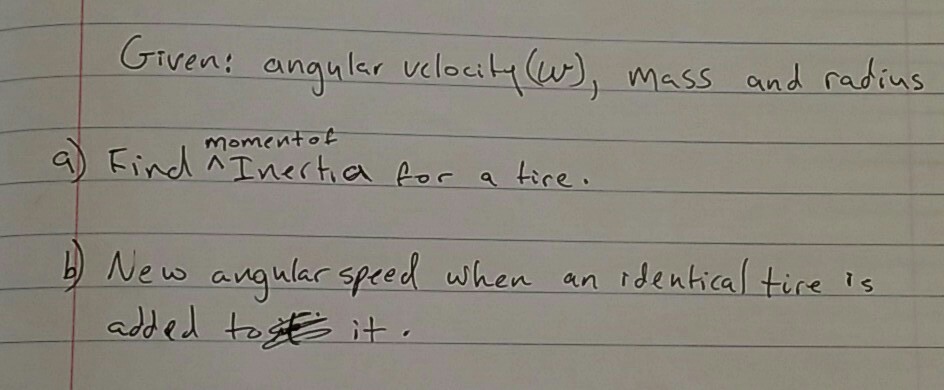 Given: angular velocity (w), mass and radius
a) Find ^ moment of Inertia for a tire.
b) New angular speed when an identical tire is
added to it.